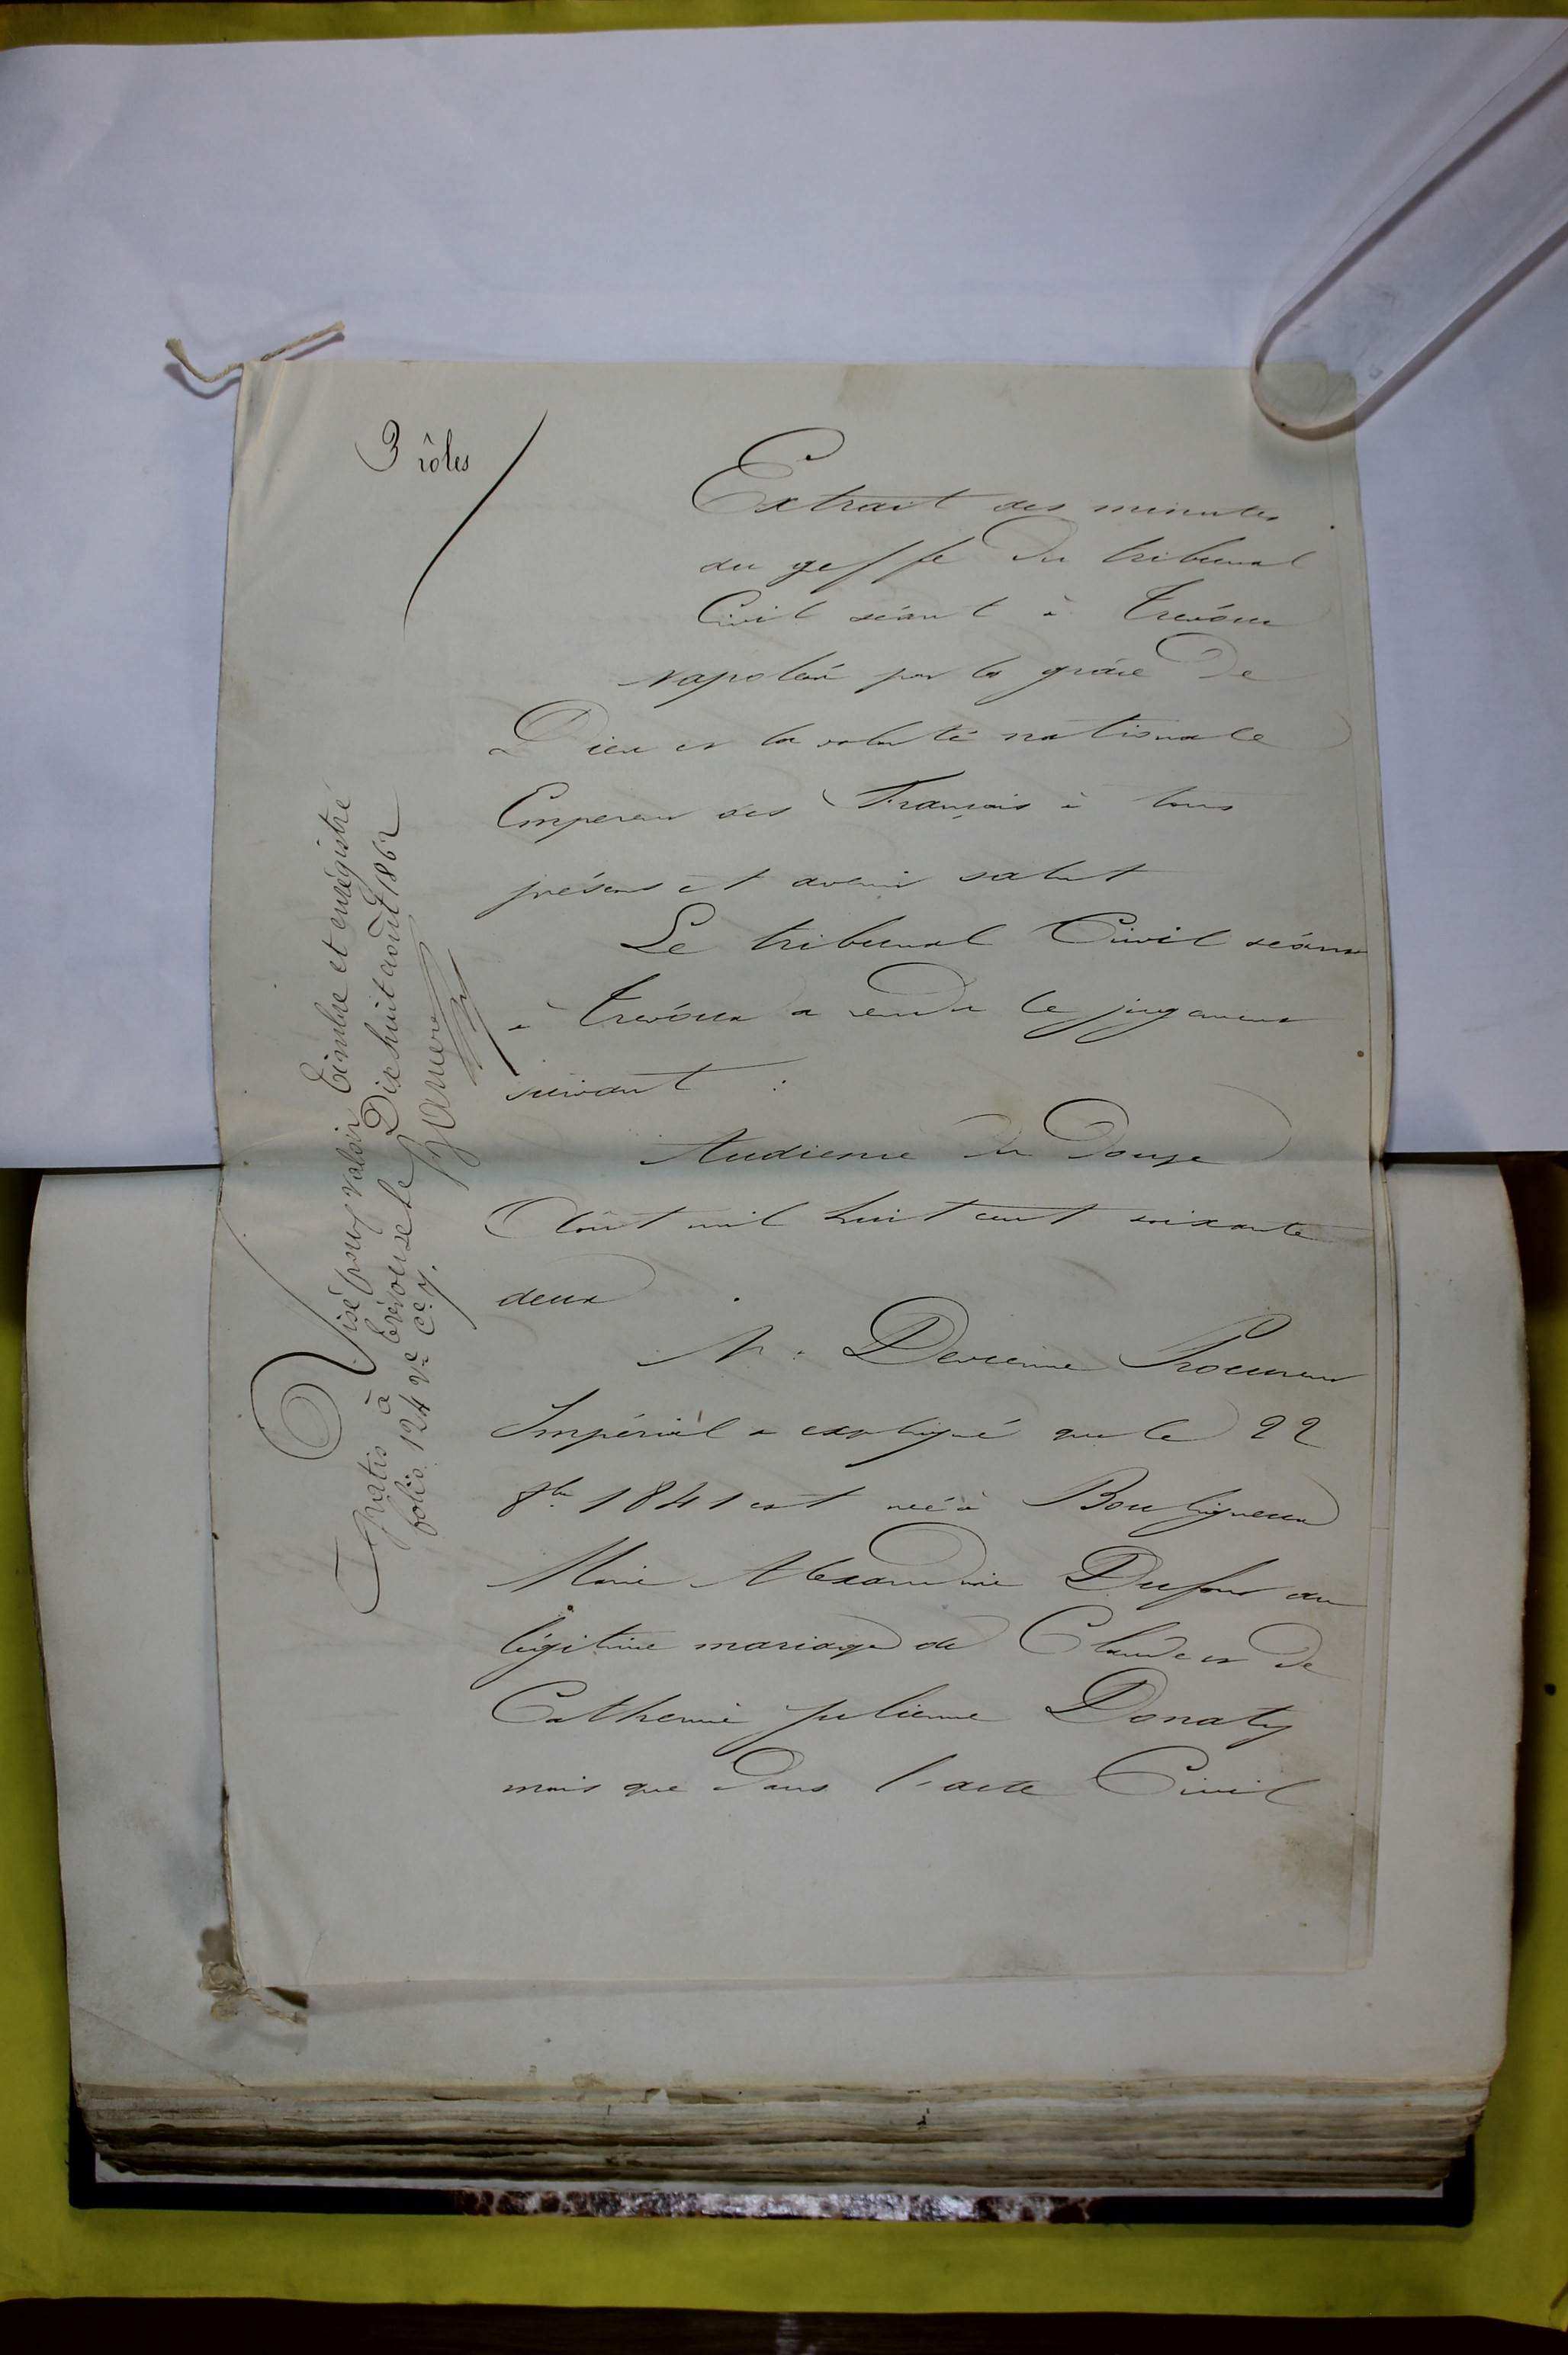 3 rôles
Extrait des minutes
du greffe du tribunal
Civil séant à Trévoux
Napoléon par la grâce de
Dieu et la volonté nationale
Empereur des Français à tous
présens et avenir salut
Le tribunal Civil séant
à Trévoux a rendu le jugement
suivant :
Audience du Douze
Août mil huit cent soixante
deux .
M. Devienne Procureur
Impérial a expliqué que le 22
8bre 1841 est née à Bouligneux
Marie Alexandrine Dufour du
légitime mariage de Claude et de
Catherine Julienne Donaty
mais que dans l'acte Civil
Visé pour valoir Timbre et enrégistré
gratis à Trévoux le Dix huit août 1862
folio 124 Vo Ce 7.